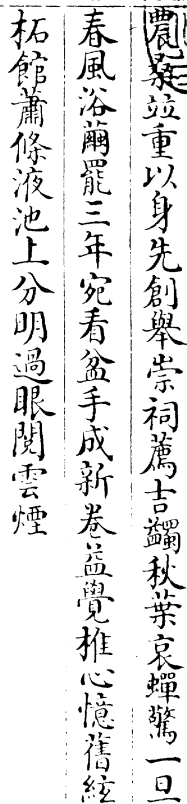 農桑竝重以身先創舉崇祠薦吉蠲秋葉哀蟬驚一旦
春風浴繭罷三年宛看盆手成新卷益覺椎心憶舊絃
柘館蕭條液池上分明過眼閱雲煙